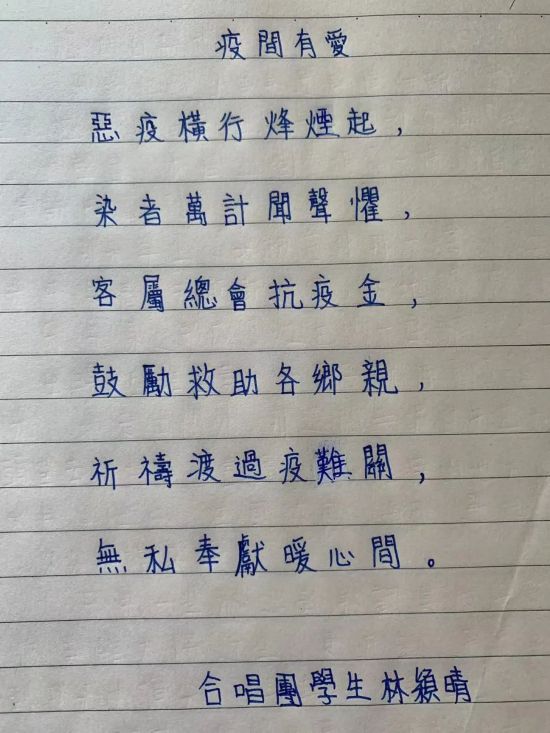 疫間有愛
惡疫橫行烽煙起，
染者萬計聞聲懼，
客屬總會抗疫金，
鼓勵救助各鄉親，
祈禱渡過疫難關，
無私奉獻暖心間。
合唱團學生林穎晴